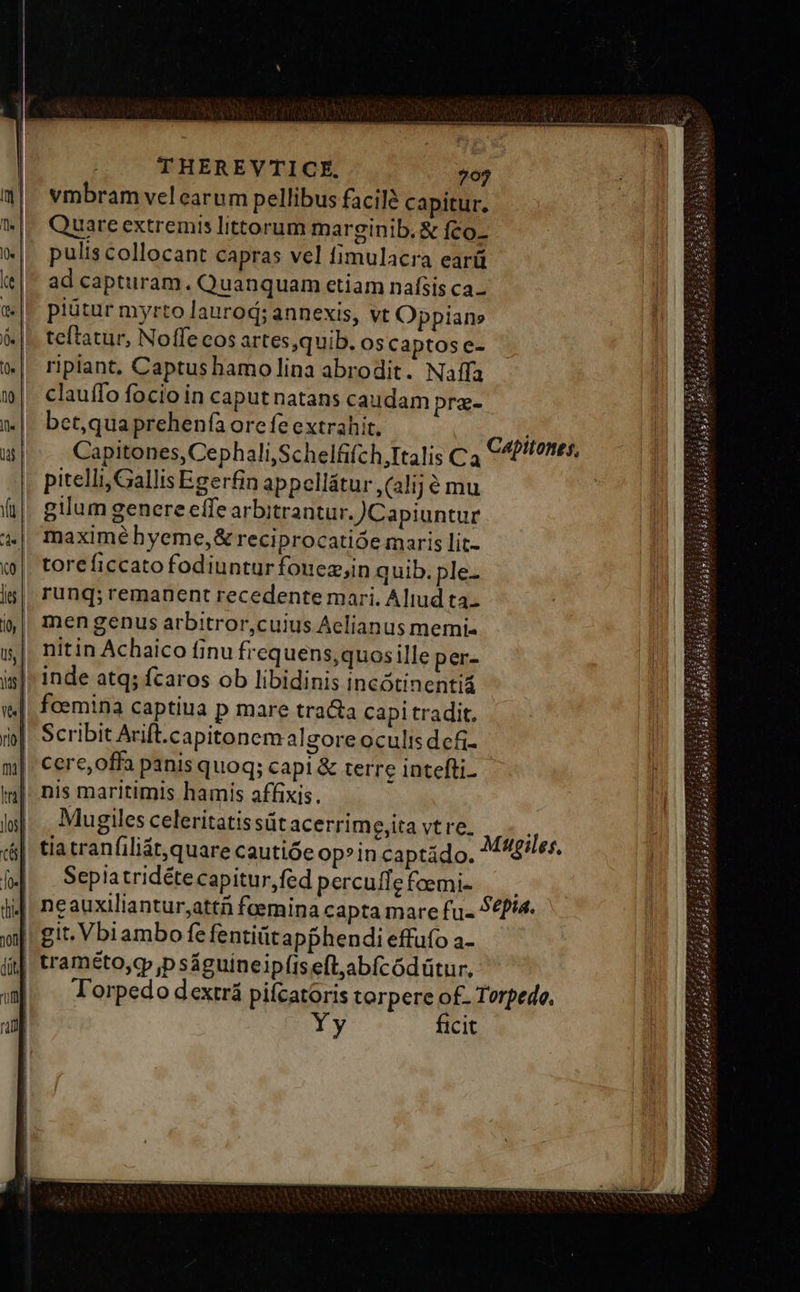 THEREVTICE. 707
vmbram vel earum pellibus facilè capitur.
Quare extremis littorum marginib. & ſco-
pulis collocant capras vel ſimulacra earũ
ad capturam. Quanquam etiam naſsis ca-
piũtur myrto lauroq; annexis, vt Oppianꝰ
teſtatur, Noſſe eos artes, quib. os captos e-
ripiant. Captus hamo lina abrodit. Naſſa
clauſſo focio in caput natans caudam præ-
bet, qua prehenſa ore ſe extrahit.
Capitones, Cephali, Schelfiſch, Italis Ca
Capitones.
pitelli, Gallis Egerfin appellãtur, (alij è mu
gilum genere eſſe arbitrantur.) Capiuntur
maximè hyeme, & reciprocatiõe maris lit-
tore ſiccato fodiuntur foueæ, in quib. ple-
runq; remanent recedente mari. Aliud ta-
men genus arbitror, cuius Aelianus memi-
nit in Achaico ſinu frequens, quos ille per-
inde atq; ſcaros ob libidinis incõtinentiã
fœmina captiua p mare tracta capi tradit.
Scribit Ariſt. capitonem algore oculis defi-
cere, offa panis quoq; capi & terre inteſti-
nis maritimis hamis affixis.
Mugiles celeritatis sũt acerrime, ita vt re-
tia tranſiliãt, quare cautiõe opꝰ in captãdo.
Mugiles.
Sepia tridẽte capitur, ſed percuſſe fœmi-
ne auxiliantur, attñ fœmina capta mare fu-
Sepia.
git. Vbi ambo ſe ſentiũt app̃hendi effuſo a-
tramẽto, ꝙ p sãguine ipſis eſt, abſcõdũtur.
Torpedo dextrã piſcatoris torpere of-
Torpedo.
Yy ficit